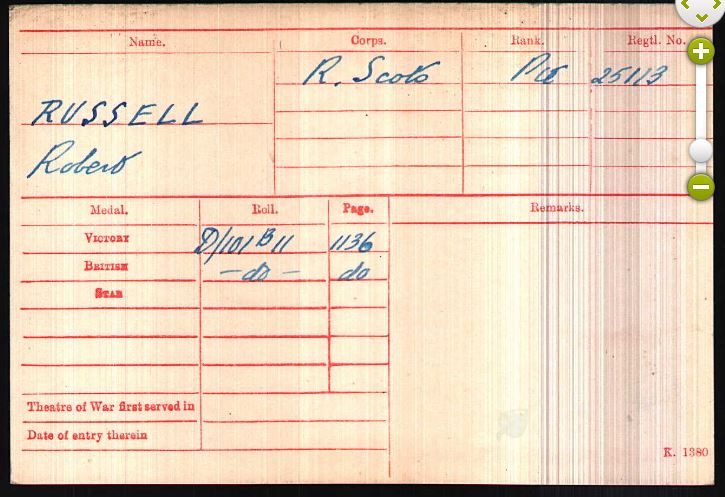 Name. Corps. Rank. Regtl. No.
R. Scots Pte 25113
RUSSELL
Robert
Medal. Roll. Page. Remarks.
VICTORY D/101 B 11 1136
BRITISH - do - do
STAR
Theatre of War first served in
Date of entry therein
K. 1380